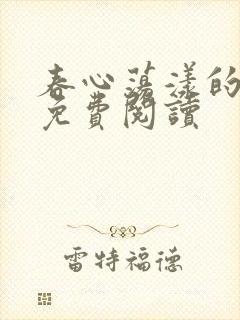 春心蕩漾的
免費閱讀
雷特福德